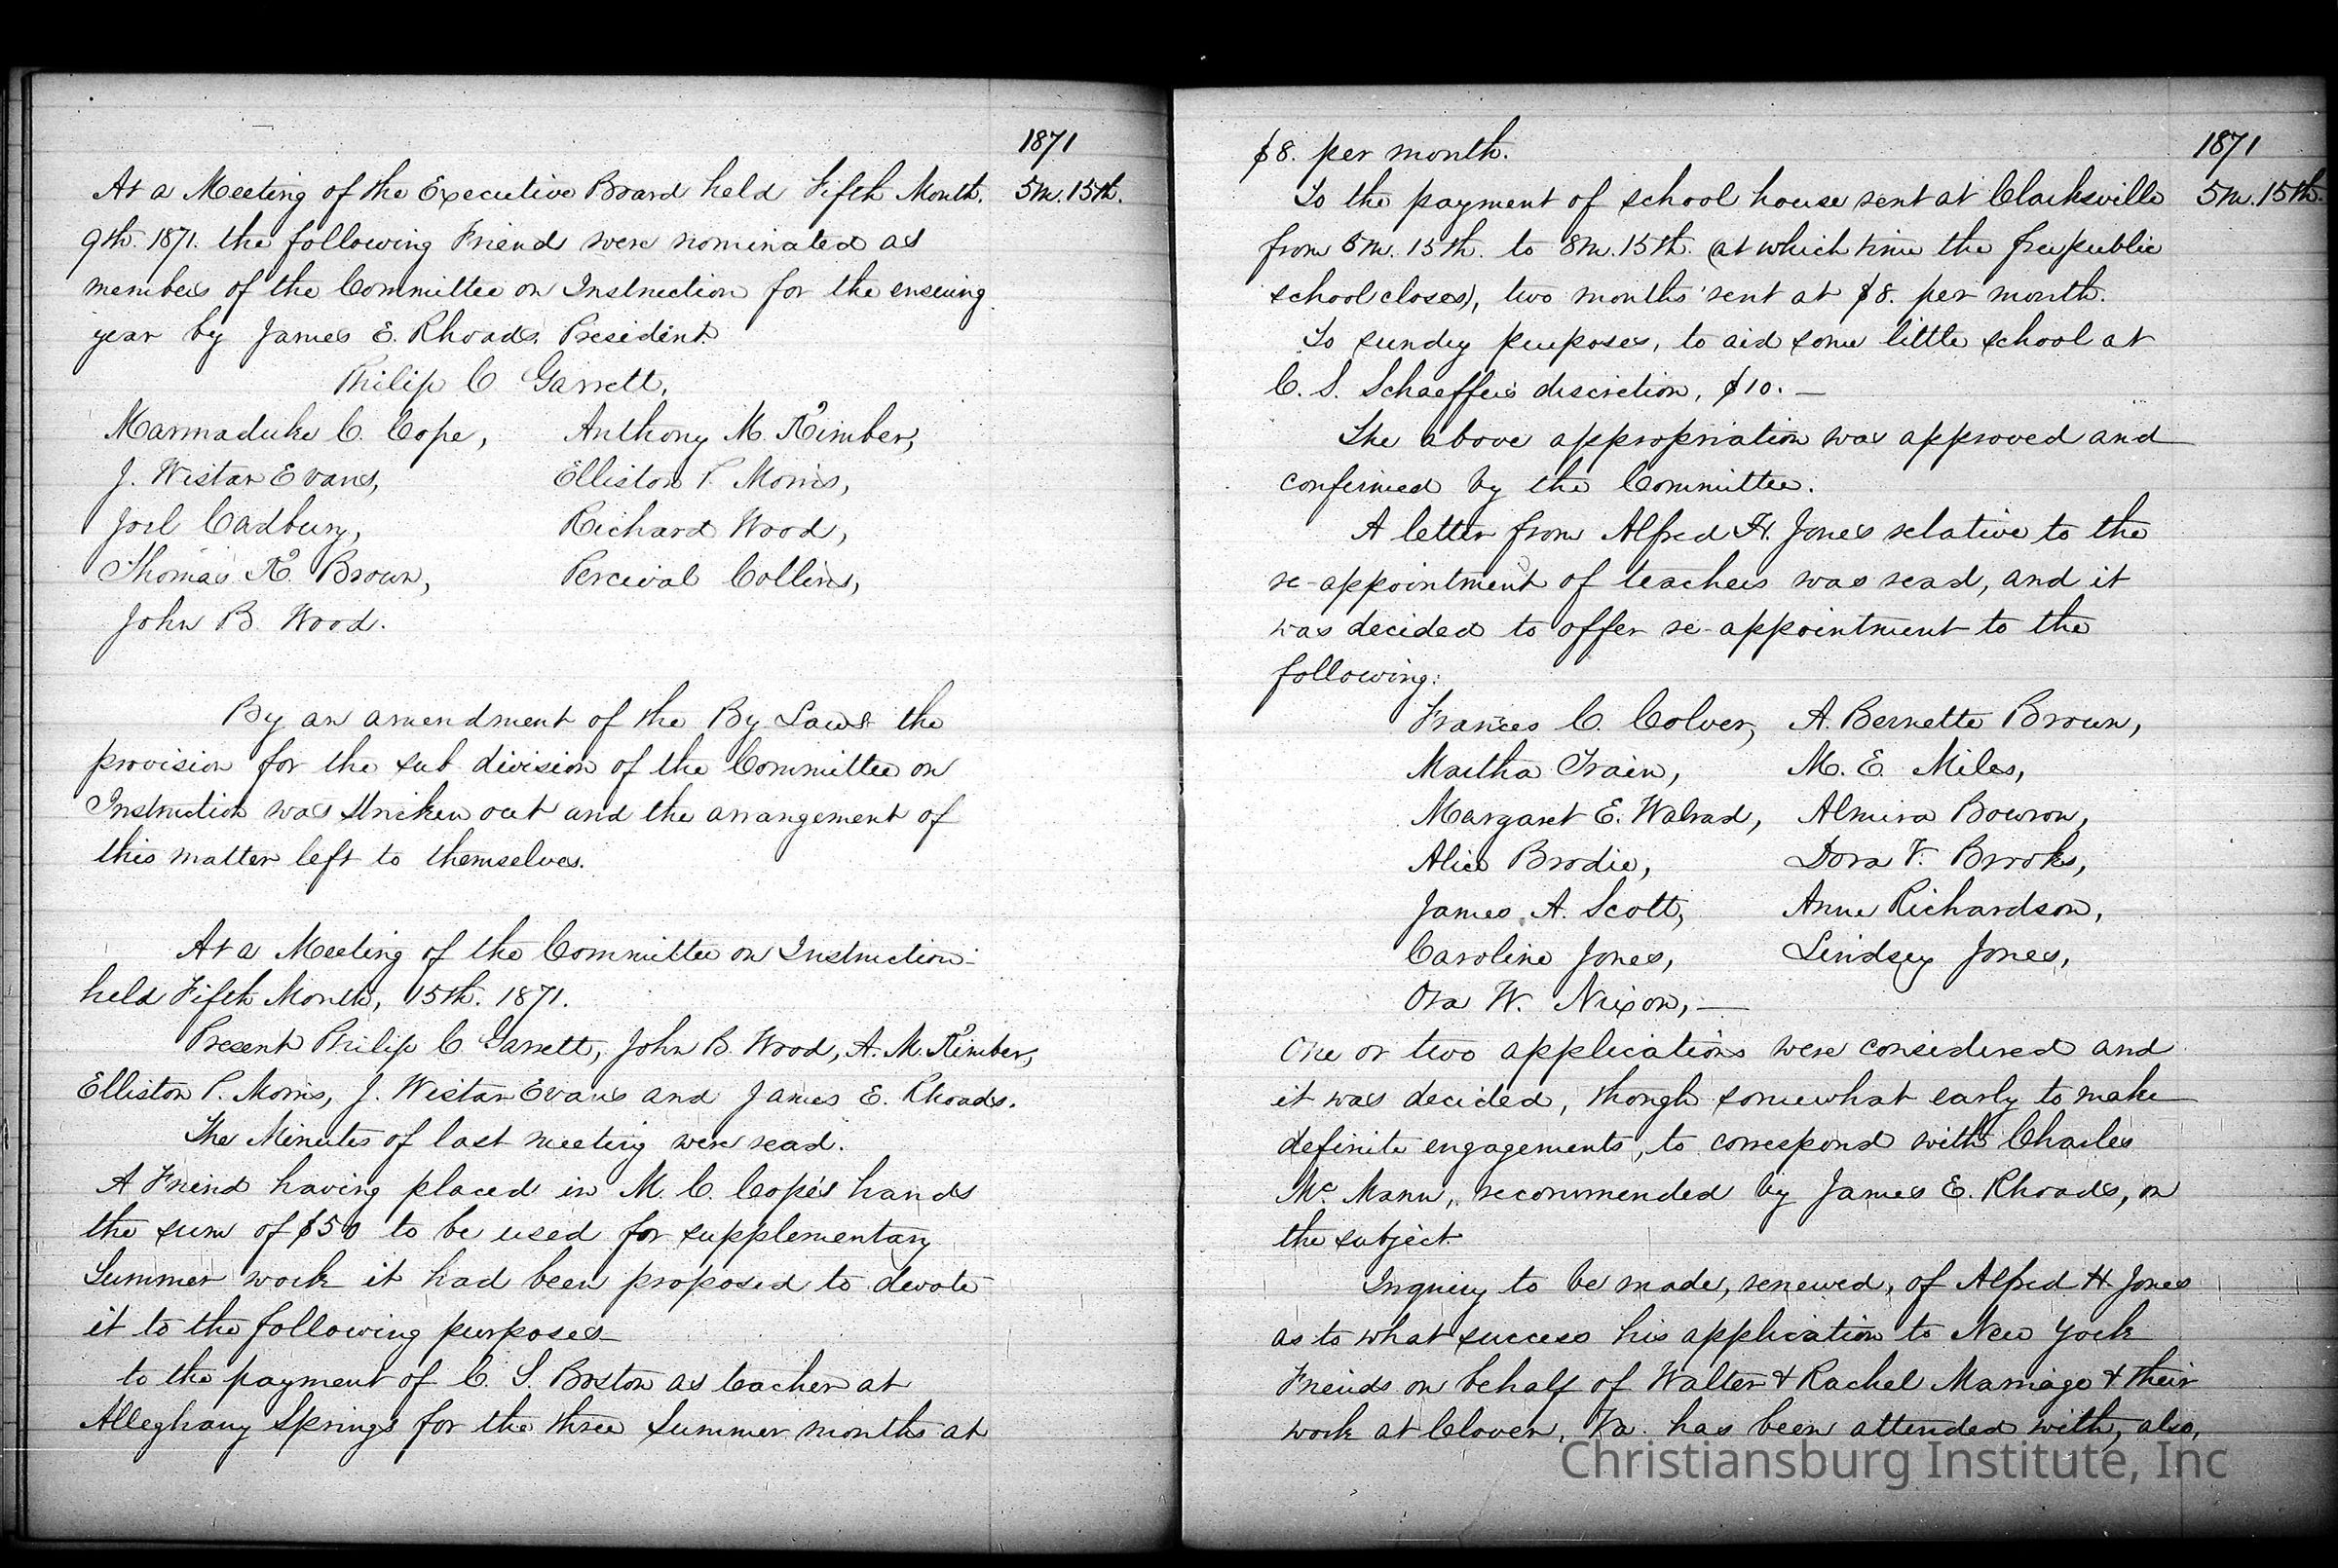 1871
At a Meeting of the Executive Board held Fifth Month. 5m. 15th.
9th. 1871. the following Friend were nominated as
members of the Committee on Instruction for the ensuing
year by James E. Rhoads. President.
Philip C. Garrett,
Marmaduke C. Cope, Anthony M. Kimber,
J. Wistar Evans, Elliston P. Morris,
Joel Cadbury, Richard Wood,
Thomas K. Brown, Percival Collins,
John B. Wood.
By an amendment of the By Laws the
provision for the sub division of the Committee on
Instruction was stricken out and the arrangement of
this matter left to themselves.
At a Meeting of the Committee on Instruction
held Fifth Month, 15th. 1871.
Present Philip C. Garrett, John B. Wood, A. M. Kimber,
Elliston P. Morris, J. Wistar Evans and James E. Rhoads.
The Minutes of last meeting were read.
A Friend having placed in M. C. Cope's hands
the sum of $50 to be used for supplementary
Summer work it had been proposed to devote
it to the following purposes
to the payment of C. S. Boston as teacher at
Alleghany Springs for the three Summer months at
1871
$8. per month.
To the payment of school house rent at Clarksville 5m. 15th.
from 5m. 15th. to 8m. 15th. (at which time the free public
school closes), two months' rent at $8. per month.
To sundry purposes, to aid some little school at
C. S. Schaeffer's discretion, $10. —
The above appropriation was approved and
confirmed by the Committee.
A letter from Alfred H. Jones relative to the
re-appointment of teachers was read, and it
was decided to offer re-appointment to the
following:
Frances C. Colver, A. Bernette Brown,
Martha Train, M. E. Miles,
Margaret E. Walrad, Almira Bowron,
Alice Brodie, Dora V. Brooks,
James A. Scott, Anne Richardson,
Caroline Jones, Lindsey Jones,
Ora W. Nixon, —
One or two applications were considered and
it was decided, though somewhat early to make
definite engagements, to correspond with Charles
Mc. Mann, recommended by James E. Rhoads, on
the subject.
Inquiry to be made, renewed, of Alfred H. Jones
as to what success his application to New York
Friends on behalf of Walter & Rachel Marriage & their
work at Clover, Va. has been attended with, also,
Christiansburg Institute, Inc